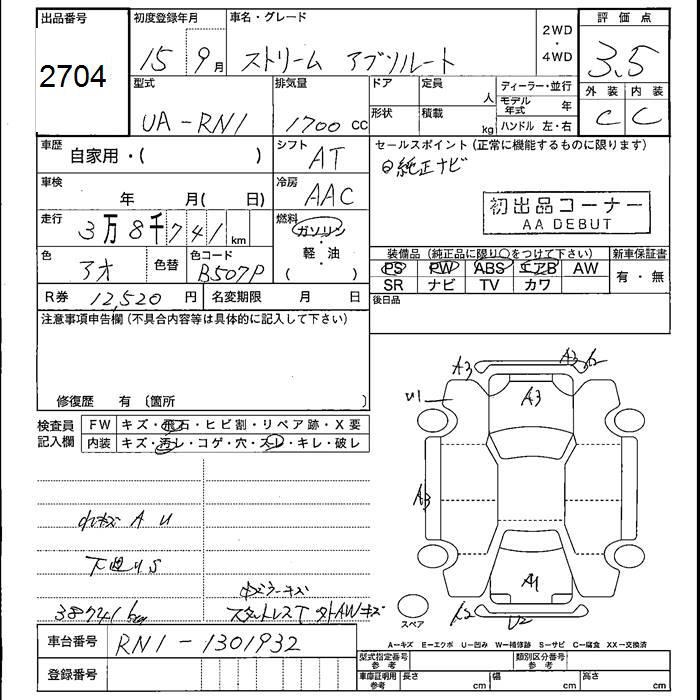 出品番号 初度登録年月 車名・グレード 2WD・4WD 評価点
2704 15 9月 ストリーム アブソルート 3.5
型式 排気量 ドア 定員 人 ディーラー・並行 外装 内装
形状 積載 kg モデル年式 年
UA-RN1 1700cc ハンドル 左・右 C C
車歴 自家用・( ) シフト AT セールスポイント(正常に機能するものに限ります)
純正ナビ
車検 年 月( 日) 冷房 AAC
初出品コーナー
AA DEBUT
走行 3万8千741km 燃料 ガソリン・軽・油( )
色 アオ 色替 色コード B507P
装備品(純正品に限り○をつけて下さい) 新車保証書
PS PW ABS エアB AW 有・無
SR ナビ TV カワ
R券 12,520円 名変期限 月 日 後日品
注意事項申告欄(不具合内容等は具体的に記入して下さい)
修復歴 有〔箇所 〕
検査員記入欄 FW キズ・飛石・ヒビ割・リペア跡・X要
内装 キズ・汚レ・コゲ・穴・スレ・キレ・破レ
A3 A3
U1 A3
A3
A1
U2
スペア
キズ A U
下廻りS
ミラーキズ
38741km スタットレスT タトAWキズ
車台番号 RN1-1301932
登録番号
A-キズ E-エクボ U-凹み W-補修跡 S-サビ C-腐食 XX-交換済
型式指定番号 参考 類別区分番号 参考
車庫証明用 参考 長さ cm 幅 cm 高さ cm